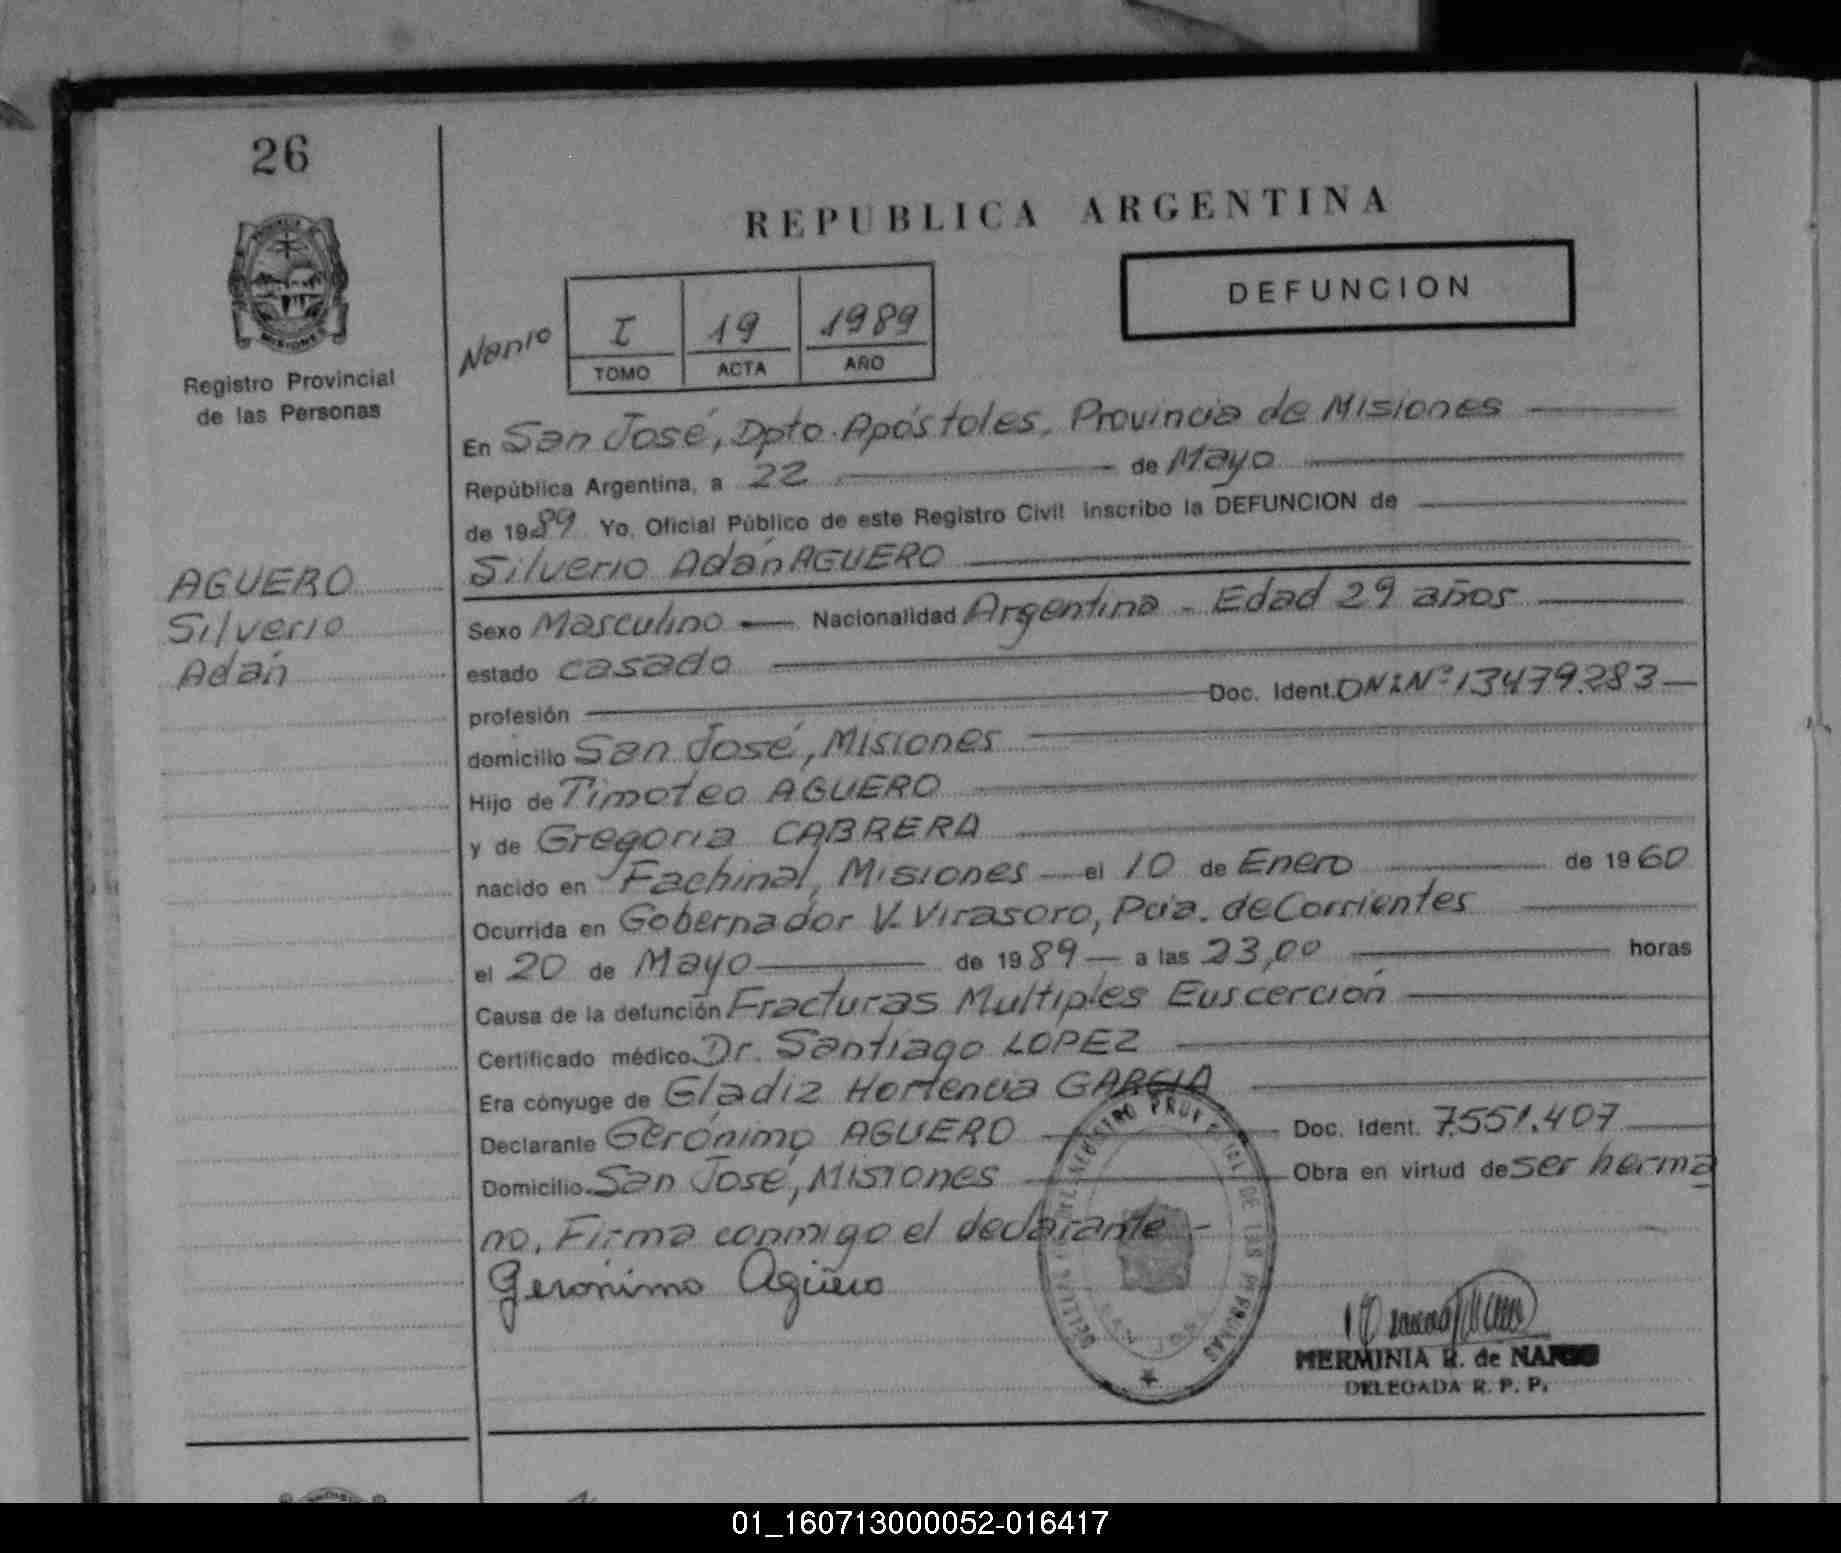 26
REPUBLICA ARGENTINA
DEFUNCION
I 19 1989
TOMO ACTA AÑO
MISIONES
Registro Provincial
de las Personas
AGUERO
Silverio
Adán
En San José, Dpto. Apóstoles, Provincia de Misiones
República Argentina, a 22 de Mayo
de 1989 Yo, Oficial Público de este Registro Civil inscribo la DEFUNCION de
Silverio Adán AGUERO
Sexo Masculino — Nacionalidad Argentina - Edad 29 años
estado casado
profesión Doc. Ident. DNI Nº 13479.283
domicilio San José, Misiones
Hijo de Timoteo AGUERO
y de Gregoria CABRERA
nacido en Fachinal, Misiones — el 10 de Enero de 1960
Ocurrida en Gobernador V. Virasoro, Pcia. de Corrientes
el 20 de Mayo de 1989 — a las 23,00 horas
Causa de la defunción Fracturas Multiples Euscerción
Certificado médico Dr. Santiago LOPEZ
Era cónyuge de Gladiz Hortencia GARCIA
Declarante Gerónimo AGUERO Doc. Ident. 7.551.407
Domicilio San José, Misiones Obra en virtud de ser herma
no. Firma conmigo el declarante.-
Gerónimo Agüero
HERMINIA R. de
DELEGADA R. P. P.
01_160713000052-016417